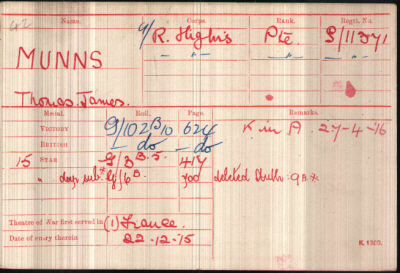 Name. Corps. Rank. Regtl. No.
MUNNS 9/R. Highrs Pte. S/11371
Thomas James.
Medal. Roll. Page. Remarks.
VICTORY G/102B10 624 K. in A. 27-4-16
BRITISH do do
15 STAR G/3 B.S. 414
G/6B. 700 deleted
Theatre of War first served in (1) France.
Date of entry therein 22-12-15
K. 1380.